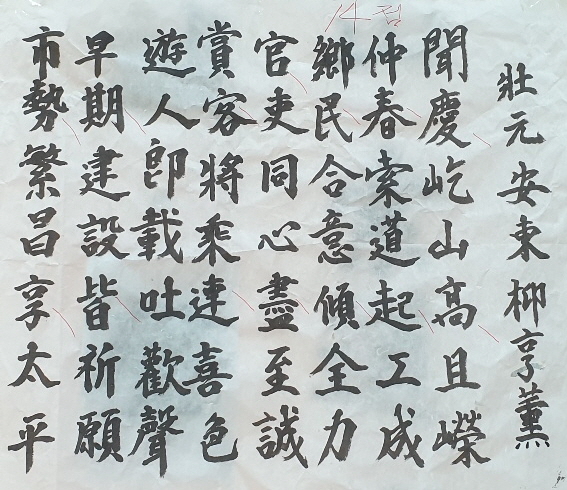 14점
壯元安東柳亨薰
聞慶屹山高且嶸
仲春索道起工成
鄉民合意傾全力
官吏同心盡至誠
賞客將乘連喜色
遊人卽載吐歡聲
早期建設皆祈願
市勢繁昌享太平